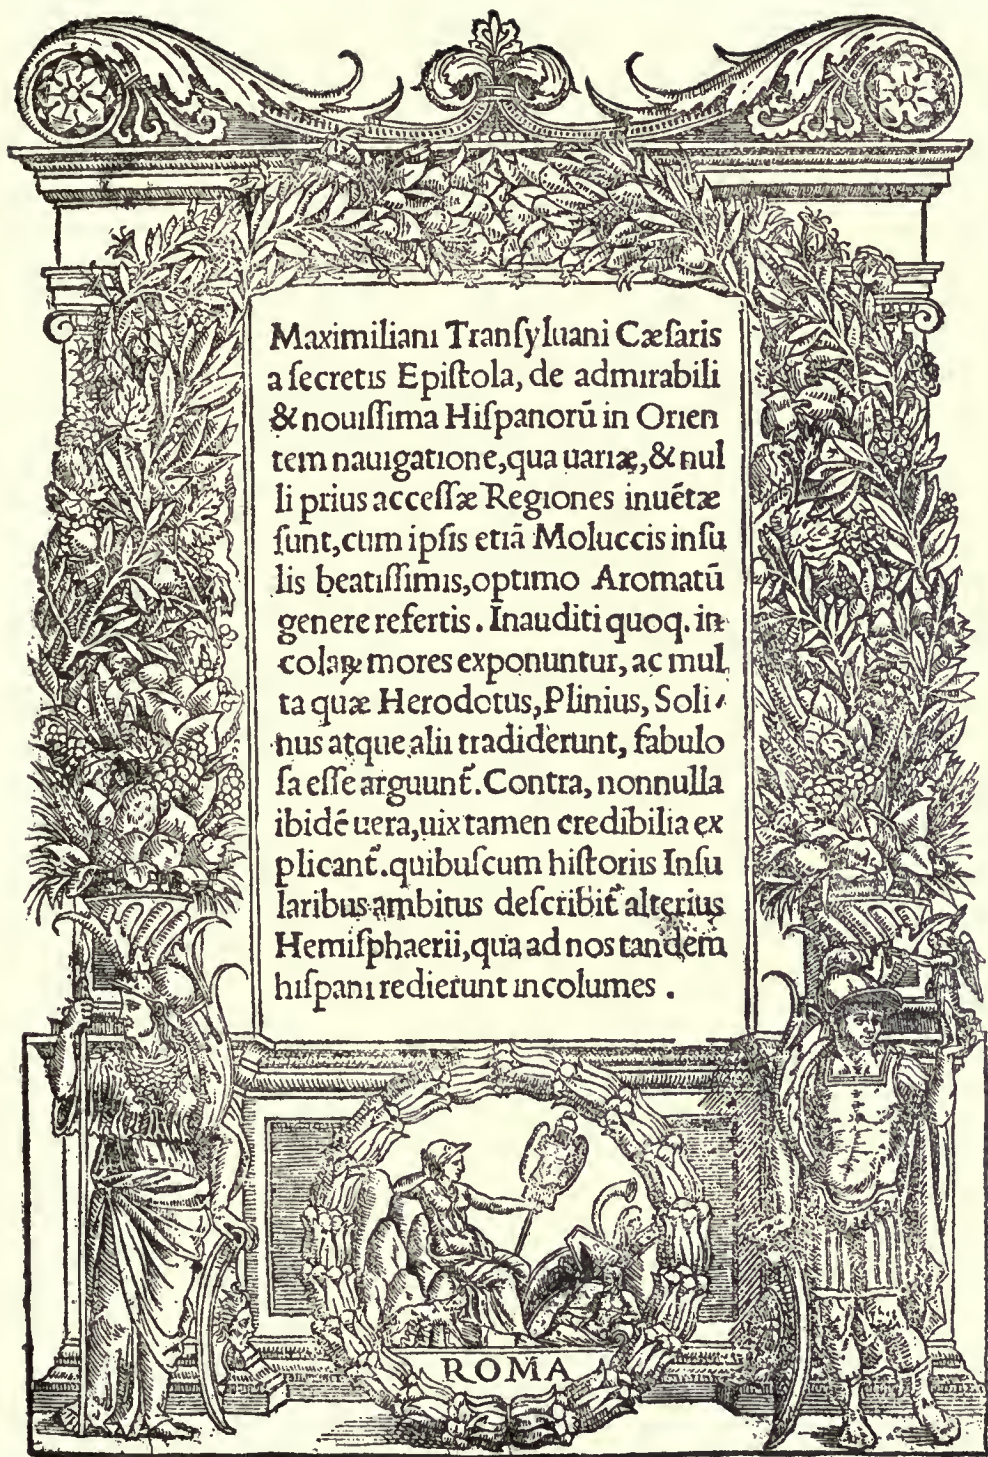 Maximiliani Tranſyluani Cæſaris
a ſecretis Epiſtola, de admirabili
& nouiſſima Hiſpanorū in Orien
tem nauigatione, qua uariæ, & nul
li prius acceſſæ Regiones inuētæ
ſunt, cum ipſis etiā Moluccis inſu
lis beatiſſimis, optimo Aromatū
genere refertis. Inauditi quoq. in
colaꝝ mores exponuntur, ac mul
ta quæ Herodotus, Plinius, Soli⸗
nus atque alii tradiderunt, fabulo
ſa eſſe arguunt᷑. Contra, nonnulla
ibidē uera, uix tamen credibilia ex
plicant᷑. quibuſcum hiſtoriis Inſu
laribus ambitus deſcribit᷑ alterius
Hemiſphaerii, qua ad nos tandem
hiſpani redierunt incolumes.
ROMA